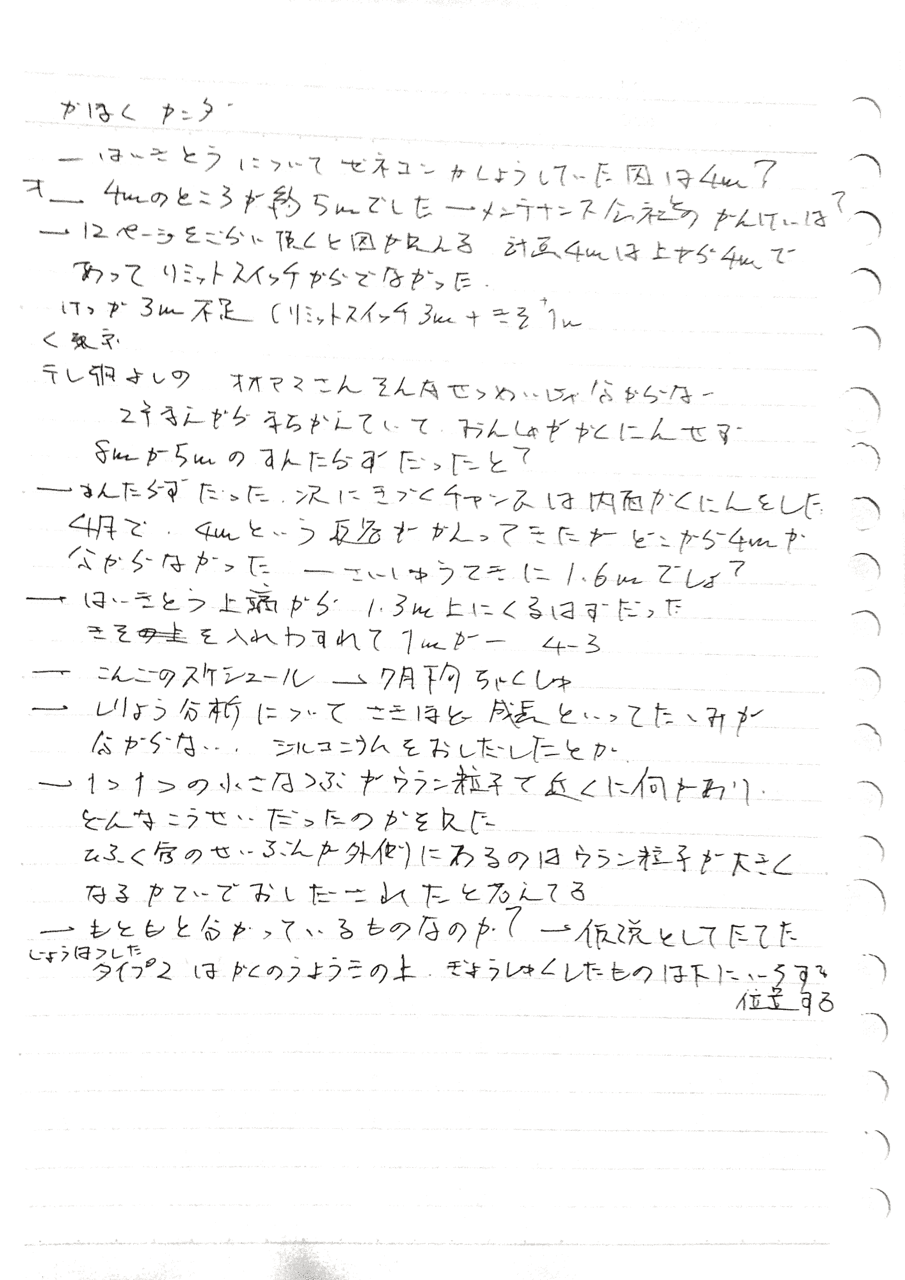 かほく カニダ
— はいきとう について ゼネコン がしようしていた図は4m?
オ — 4mのところが約5mでした — メンテナンス会社との かんけいは?
— 12ページをごらい頂くと図が見える 計画4mは上から4mで
あって リミットスイッチからでなかった.
けっか 3m 不足 (リミットスイッチ3m + きそ 1m
く 東京
テレ朝よしの オオヤマさん そんなせつめいじゃ 分からない
2年まえから まちがえていて. おんしゃがかくにんせず
8mが5mの すんたらず だったと?
— すんたらず だった. 次に きづくチャンスは 内面かくにんをした
4月で. 4mという 反応が かえってきたが どこから4mか
分からなかった — さいしゅうてきに 1.6mでしょ?
— はいきとう上端から 1.3m上にくるはずだった
きそを入れわすれて 1mがー 4-3
— こんごのスケジュール → 7月下旬ちゃくしゅ
— しりょう分析について さきほど 成長といってたいみが
分からない.. ジルコニウムをおしだしたとか
— 1つ1つの小さなつぶがウラン粒子で近くに何があり.
どんなこうせいだったのかを見た
ひふく管のせいぶんが外側にあるのはウラン粒子が大きく
なるかていでおしだされたと考えてる
— もともと分かっているものなのか? — 仮説としてたてた
じょうはつした
タイプ2 はかくのうようきの上. ぎょうしゅくしたものは下にいちする
位置する